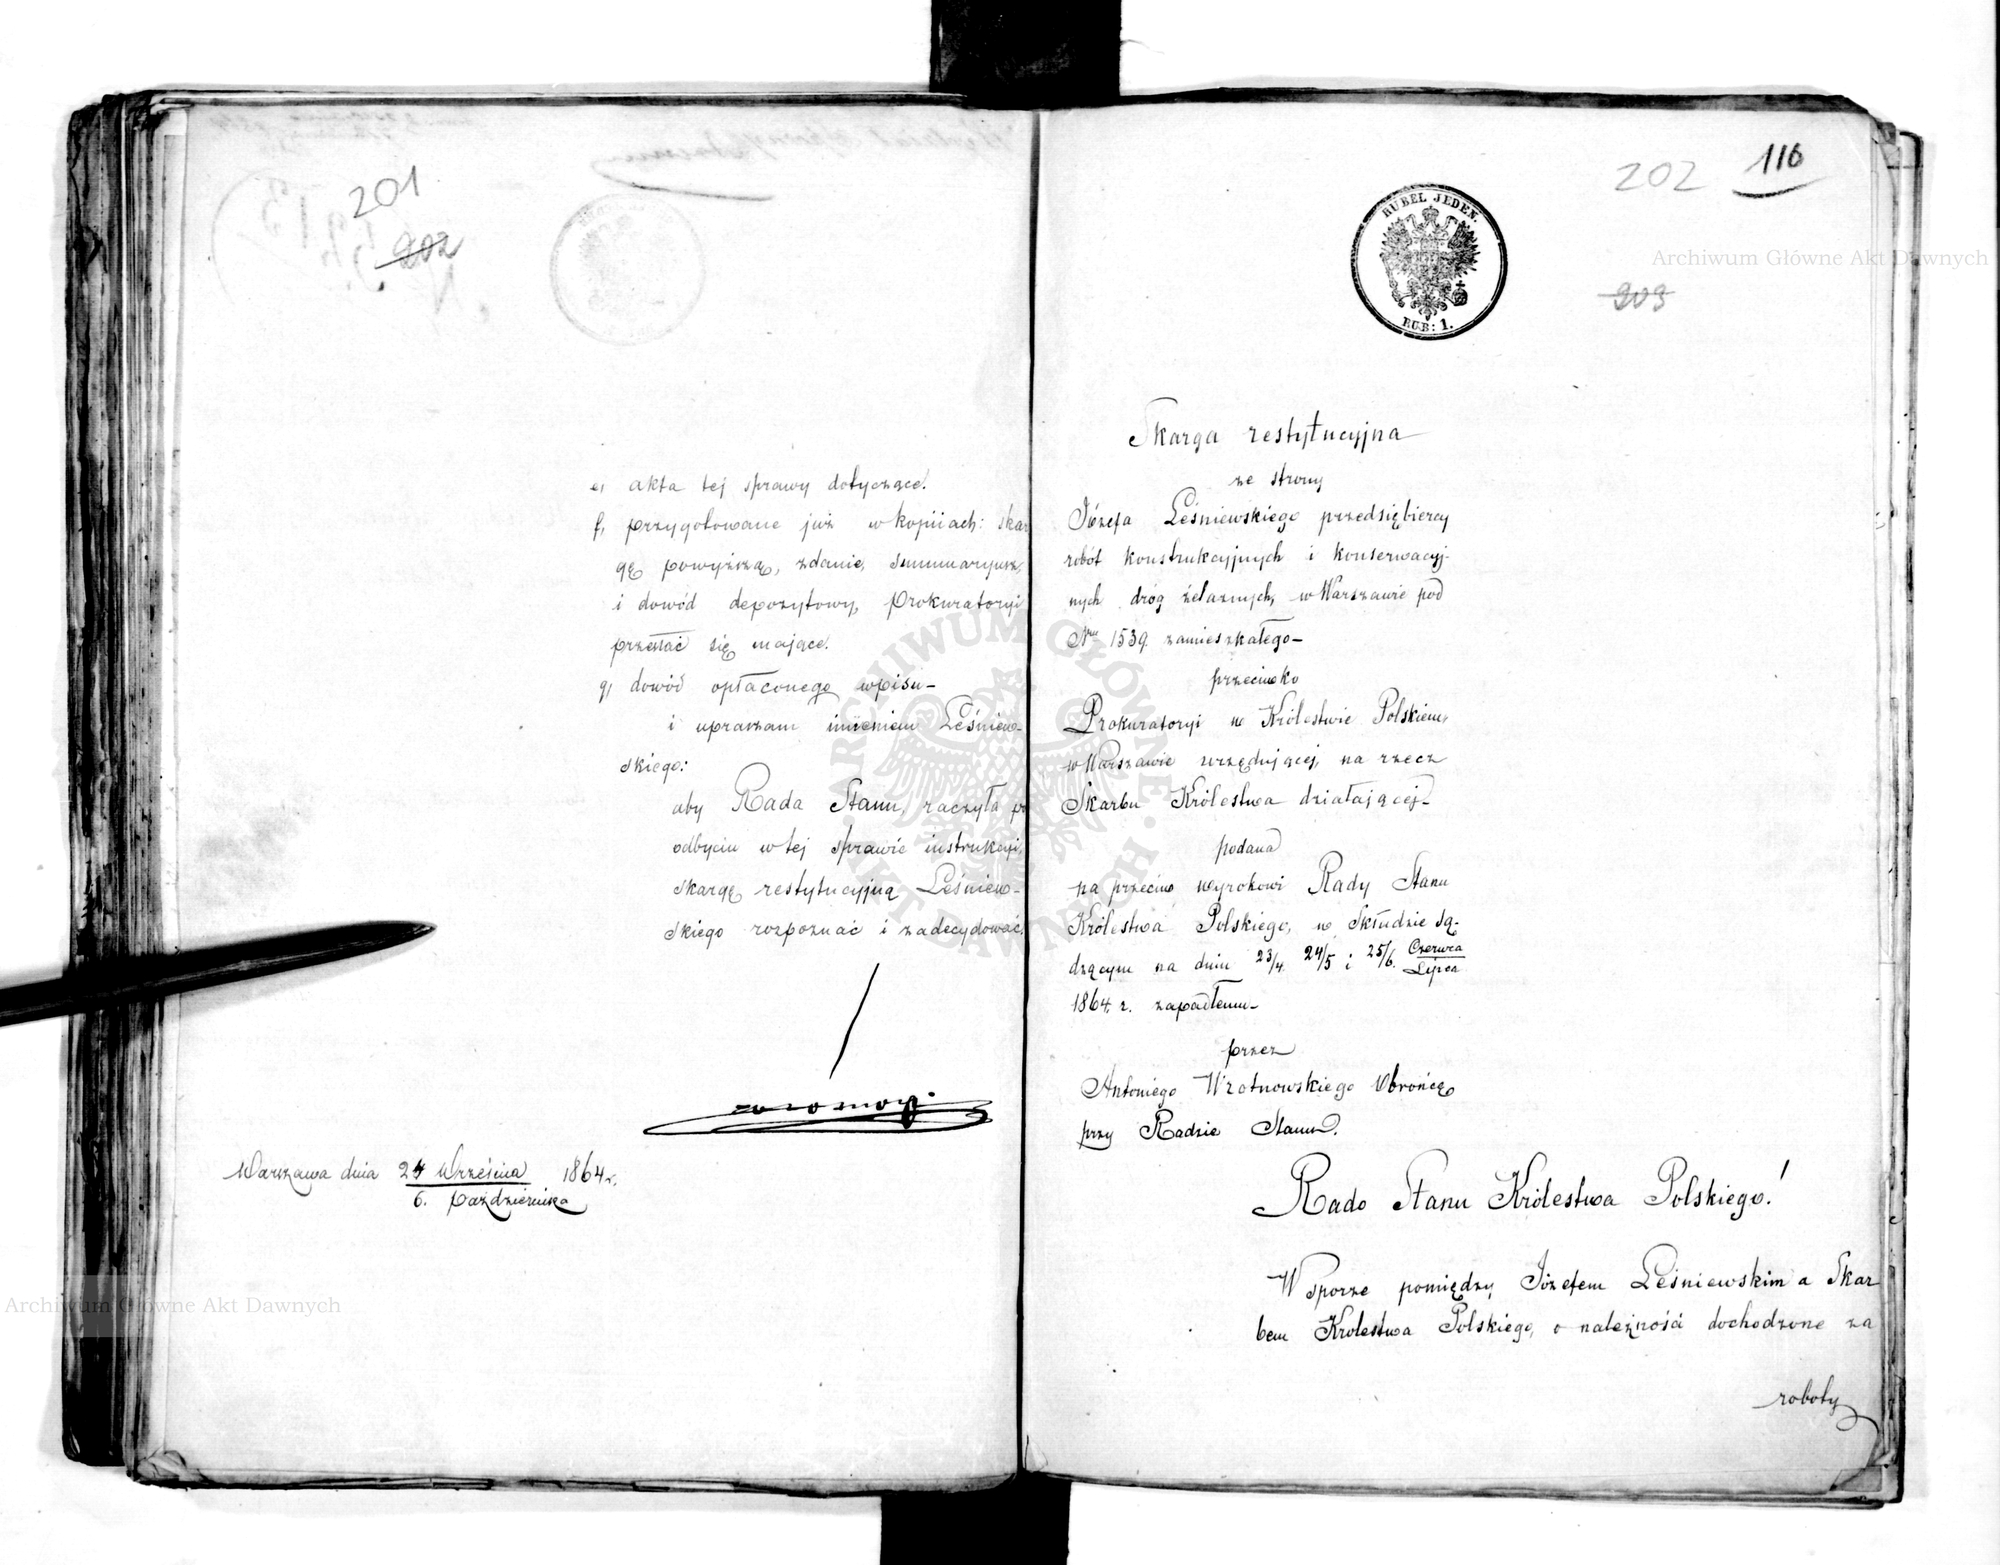 201
202
e, akta tej sprawy dotyczące.
f, przygotowane już w kopiiach: skar
gę powyższą, zdanie, summaryusz,
i dowód depozytowy, Prokuratoryi
przesłać się mające.
g, dowód opłaconego wpisu –
i upraszam imieniem Leśniew-
skiego:
aby Rada Stanu, raczyła po
odbyciu w tej sprawie instrukcyi,
skargę restytucyjną Leśniew-
skiego rozpoznać i zadecydować.
Warszawa dnia 24 Września 1864 r.
6. Października
202 116
203
RUBEL JEDEN.
RUB: 1.
Skarga restytucyjna
ze strony
Józefa Leśniewskiego przedsiębiercy
robót konstrukcyjnych i konserwacyj-
nych dróg żelaznych, w Warszawie pod
Nrm 1539. zamieszkałego –
przeciwko
Prokuratoryi w Królestwie Polskiem,
w Warszawie urzędującej, na rzecz
Skarbu Królestwa działającej –
podana
na przeciw wyrokowi Rady Stanu
Królestwa Polskiego, w Składzie Są-
dzącym na dniu 23/4. 24/5 i 25/6. Czerwca
Lipca
1864. r. zapadłemu –
przez
Antoniego Wrotnowskiego Obrońcę
przy Radzie Stanu.
Rado Stanu Królestwa Polskiego!
W Sporze pomiędzy Józefem Leśniewskim a Skar
bem Krolestwa Polskiego, o należności dochodzone za
roboty
Archiwum Główne Akt Dawnych
Archiwum Główne Akt Dawnych
ARCHIWUM GŁÓWNE AKT DAWNYCH